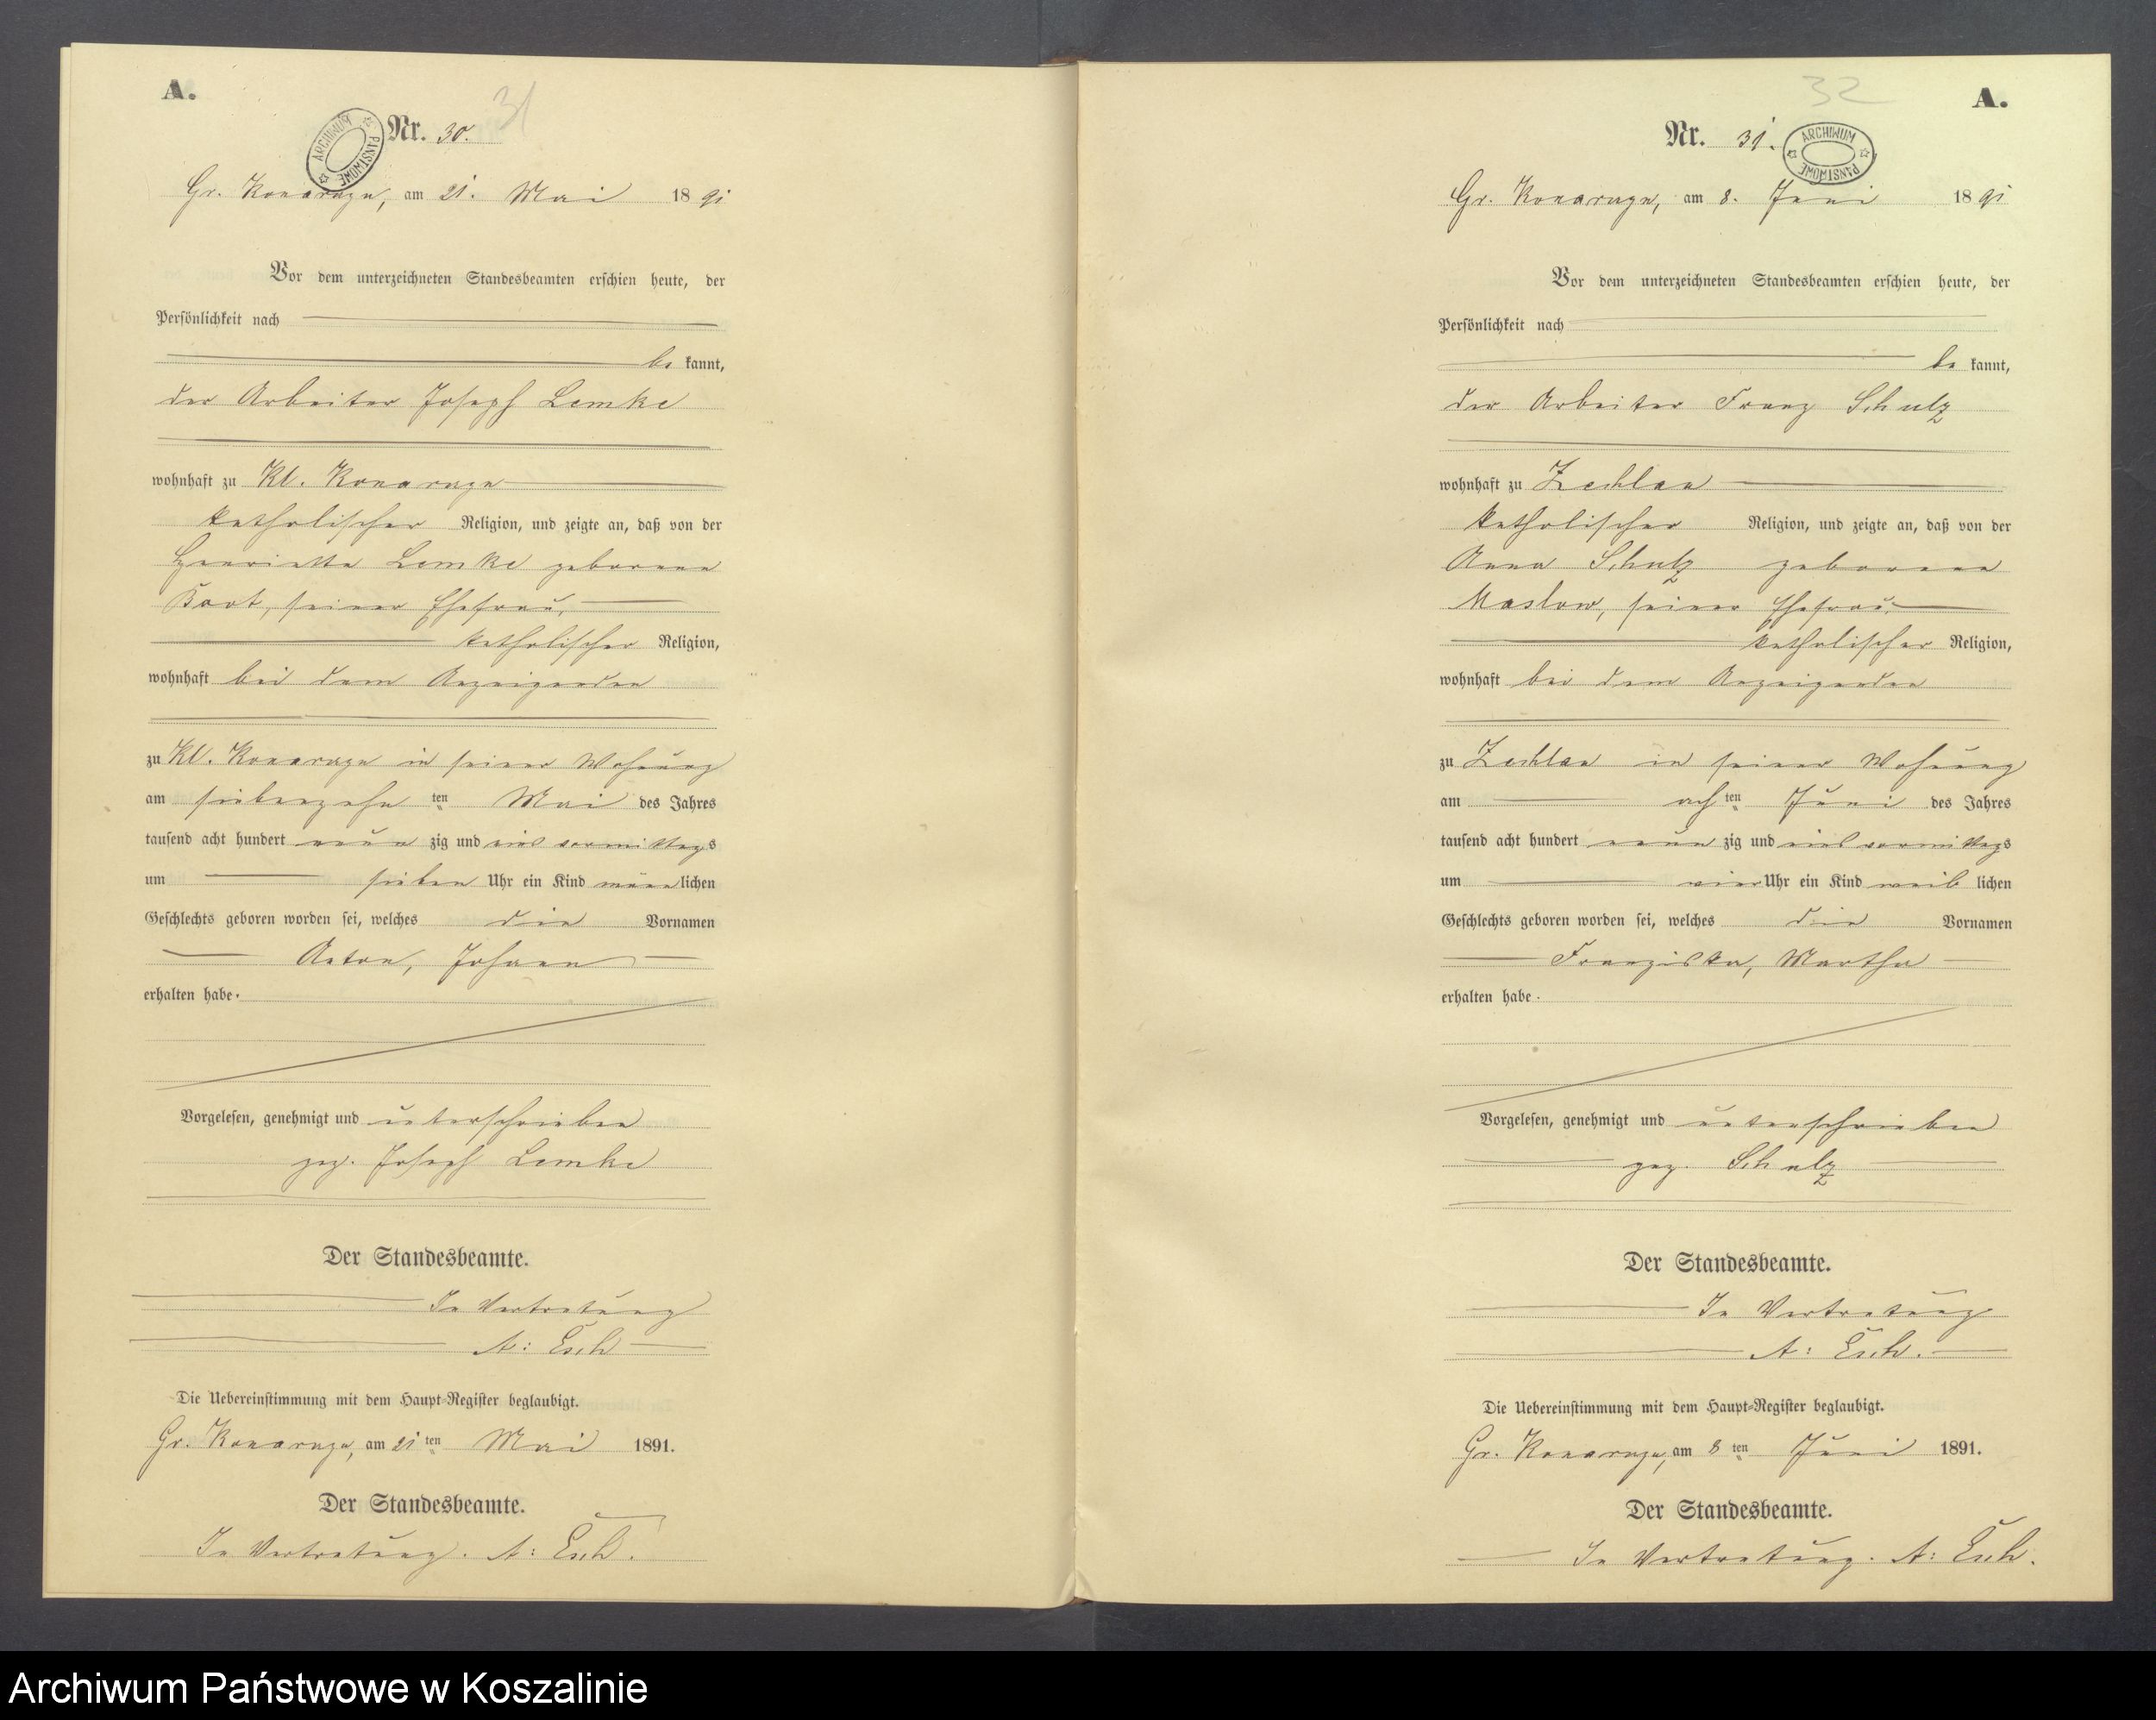 A.
31
Nr. 30.
ARCHIWUM PAŃSTWOWE
Gr. Konarczyn, am 21. Mai 1891
Vor dem unterzeichneten Standesbeamten erschien heute, der
Persönlichkeit nach
be kannt,
der Arbeiter Joseph Lemke
wohnhaft zu Kl. Konarczyn
katholischer Religion, und zeigte an, daß von der
Henriette Lemke geborenen
seiner Ehefrau,
katholischer Religion,
wohnhaft bei dem Anzeigenden
zu Kl. Konarczyn in seiner Wohnung
am siebenzehn ten Mai des Jahres
tausend acht hundert neun zig und eins vormittags
um sieben Uhr ein Kind männlichen
Geschlechts geboren worden sei, welches die Vornamen
Anton, Johann
erhalten habe.
Vorgelesen, genehmigt und unterschrieben
gez. Joseph Lemke
Der Standesbeamte.
In Vertretung
A: Esch
Die Uebereinstimmung mit dem Haupt-Register beglaubigt.
Gr. Konarczyn, am 21 ten Mai 1891.
Der Standesbeamte.
In Vertretung. A: Esch.
32
A.
Nr. 31.
ARCHIWUM PAŃSTWOWE
Gr. Konarczyn, am 8. Juni 1891
Vor dem unterzeichneten Standesbeamten erschien heute, der
Persönlichkeit nach
be kannt,
der Arbeiter Franz Schulz
wohnhaft zu Zechlau
katholischer Religion, und zeigte an, daß von der
Anna Schulz geborenen
Maslow, seiner Ehefrau,
katholischer Religion,
wohnhaft bei dem Anzeigenden
zu Zechlau in seiner Wohnung
am ach ten Juni des Jahres
tausend acht hundert neun zig und eins vormittags
um vier Uhr ein Kind weib lichen
Geschlechts geboren worden sei, welches die Vornamen
Franziska, Martha
erhalten habe.
Vorgelesen, genehmigt und unterschrieben
gez. Schulz
Der Standesbeamte.
In Vertretung
A: Esch.
Die Uebereinstimmung mit dem Haupt-Register beglaubigt.
Gr. Konarczyn, am 8 ten Juni 1891.
Der Standesbeamte.
In Vertretung. A: Esch.
Archiwum Państwowe w Koszalinie